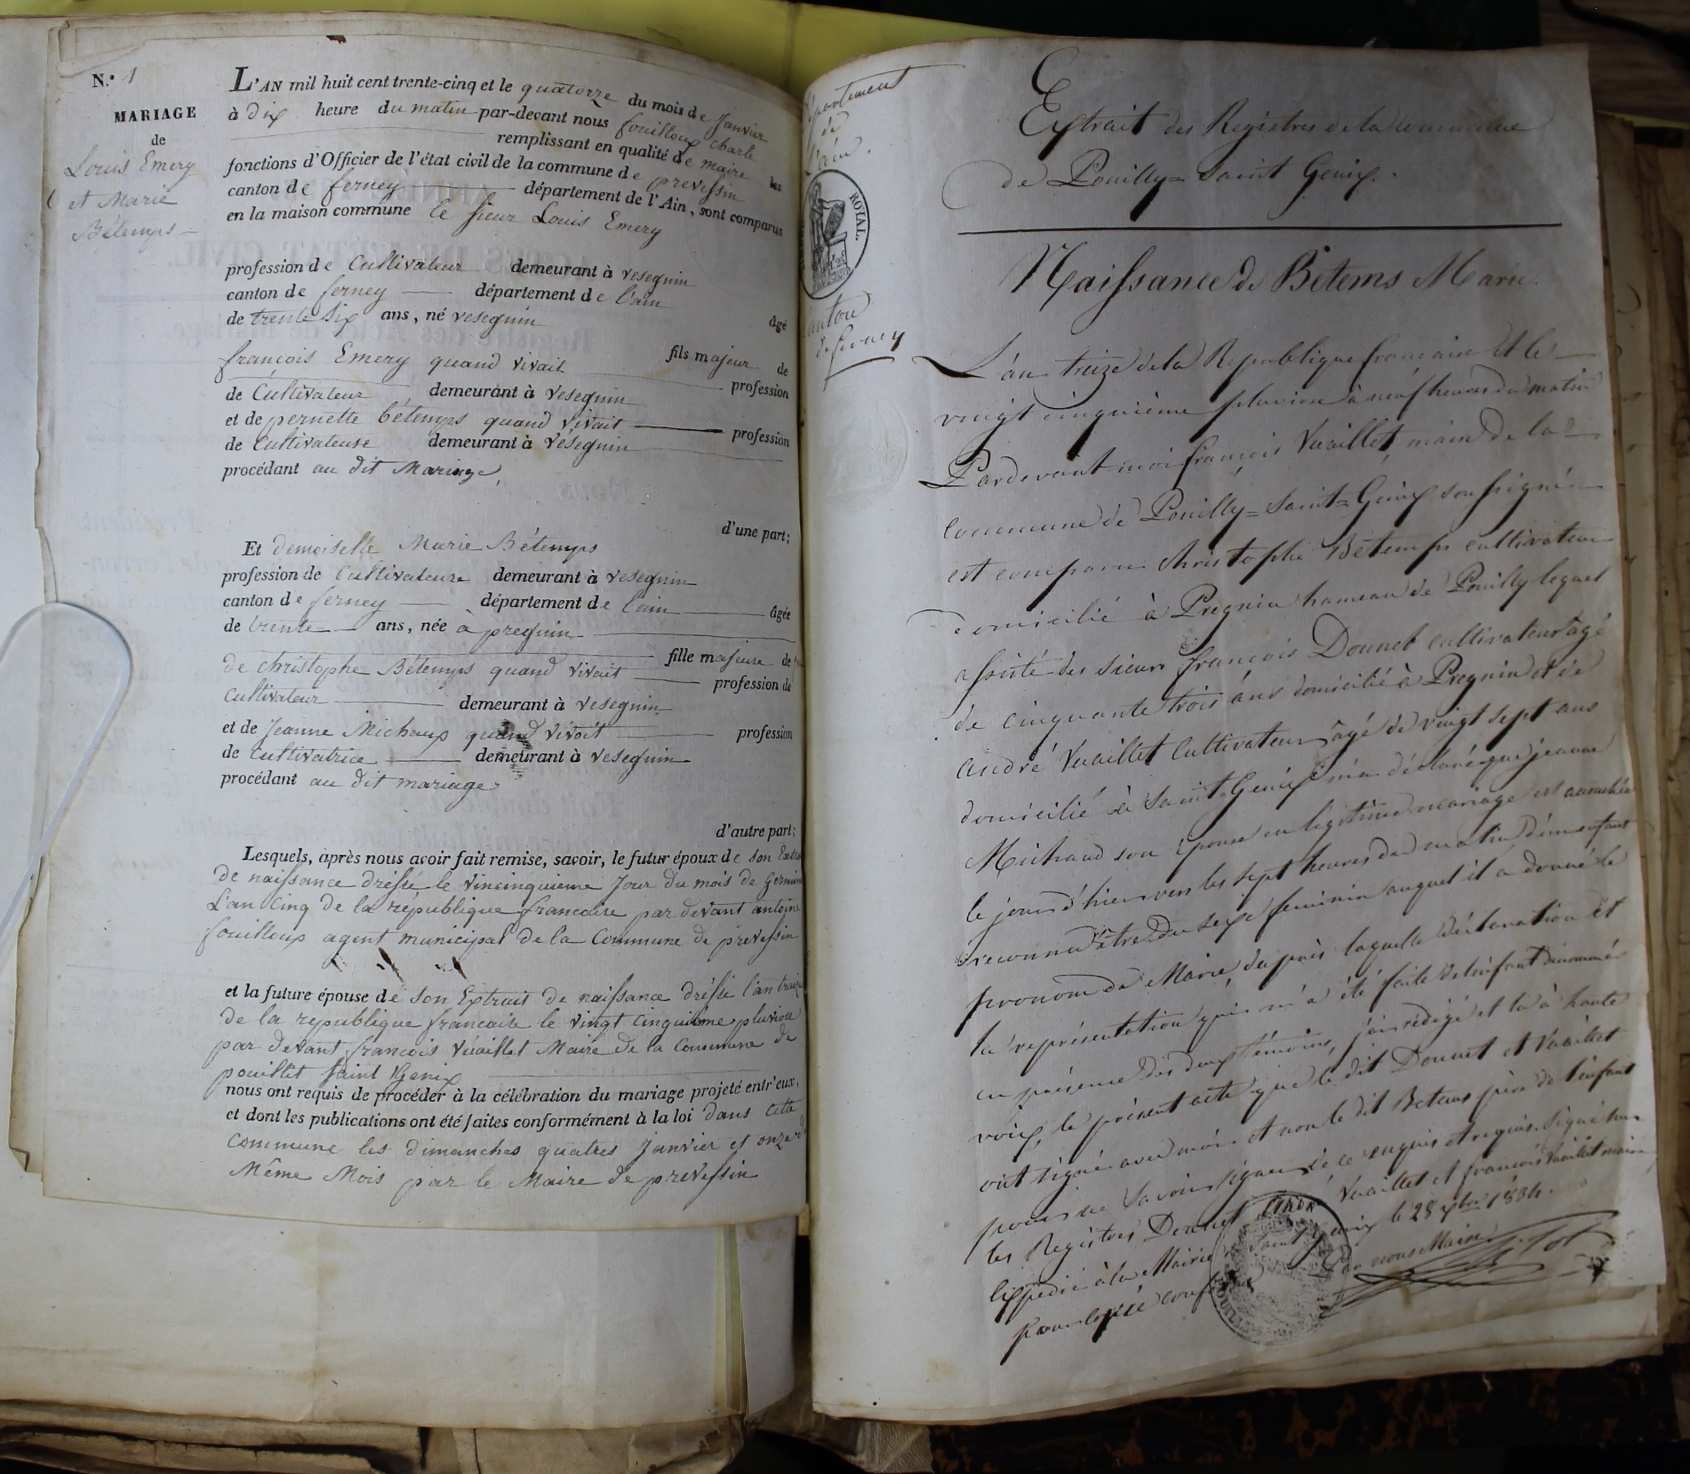 N.º 1
MARIAGE
de
Louis Emery
et Marie
Bétemps
L'AN mil huit cent trente-cinq et le quatorze du mois de Janvier
à dix heure du matin par-devant nous fouilloux Charle
remplissant en qualité de maire les
fonctions d'Officier de l'état civil de la commune de prevessin
canton de ferney département de l'Ain, sont comparus
en la maison commune le sieur Louis Emery
profession de Cultivateur demeurant à vesegnin
canton de ferney département de l'ain
âgé
de trente six ans, né vesegnin
fils majeur de
françois Emery quand vivait profession
de Cultivateur demeurant à vesegnin
et de pernette bétemps quand vivait profession
de Cultivateuse demeurant à vésegnin
procédant au dit Mariage,
d'une part;
Et demoiselle Marie Bétemps
profession de Cultivateuse demeurant à vesegnin
canton de ferney département de l'ain âgée
de trente ans, née à pregnin
fille majeure de
de christophe Bétemps quand vivait profession de
Cultivateur demeurant à vesegnin
et de Jeanne Michaup quand vivoit profession
de Cultivatrice demeurant à vesegnin
procédant au dit mariage
d'autre part;
Lesquels, après nous avoir fait remise, savoir, le futur époux de son
de naissance dréssé le vincinquieme Jour du mois de
L'an Cinq de la république francaise par devant antoine
fouilloup agent municipal de la Commune de prevessin
et la future épouse de son Extrait de naissance dréssé l'an
de la republique francaise le vingt cinquième pluviose
par devant francois vuaillet Maire de la Commune de
pouillet saint Genix
nous ont requis de procéder à la célébration du mariage projeté entr'eux,
et dont les publications ont été faites conformément à la loi dans cette
Commune les dimanches quatres Janvier et onze
Même Mois par le Maire de prevessin
Département
de
l'ain.
ROYAL.
Canton
de ferney
Extrait des Registres de la commune
de Pouilly=Saint Genix.
Naissance de Bétems Marie
L'an treize de la République francaise et le
vingt cinquième pluviose à neuf heures du matin
Pardevant moi françois Vuaillet, maire de la
commune de Pouilly=Saint=Genix soussigné
est comparu Christophe Bétemps cultivateur
domicilié à Pregnin hameau de Pouilly lequel
assisté des sieurs françois Donnet cultivateur agé
de cinquante trois ans domicilié à Pregnin et de
andré Vuaillet Cultivateur âgé de vingt sept ans
domicilié à Saint Genix m'a déclaré que jeanne
Michaud son épouse en légitime mariage est accouchée
le jour d'hier vers les sept heures du matin d'un enfant
reconnu être du sexe feminin auquel il a donné le
prenom de Marie d'après laquelle déclaration et
la représentation qui m'a été faite de l'enfant dénommé
en présence des deux témoins, j'ai rédigé et lu à haute
voix, le présent acte que le dit Donnet et Vuaillet
ont signé avec moi et non le dit Betems père de l'enfant
pour ne savoir signer de ce enquis et requis. Signé sur
les Registres Donnet Vuaillet et françois Vuaillet maire
Expédié à la Mairie Saint Genix le 28 1834.
Pour copie conforme Par nous Maire